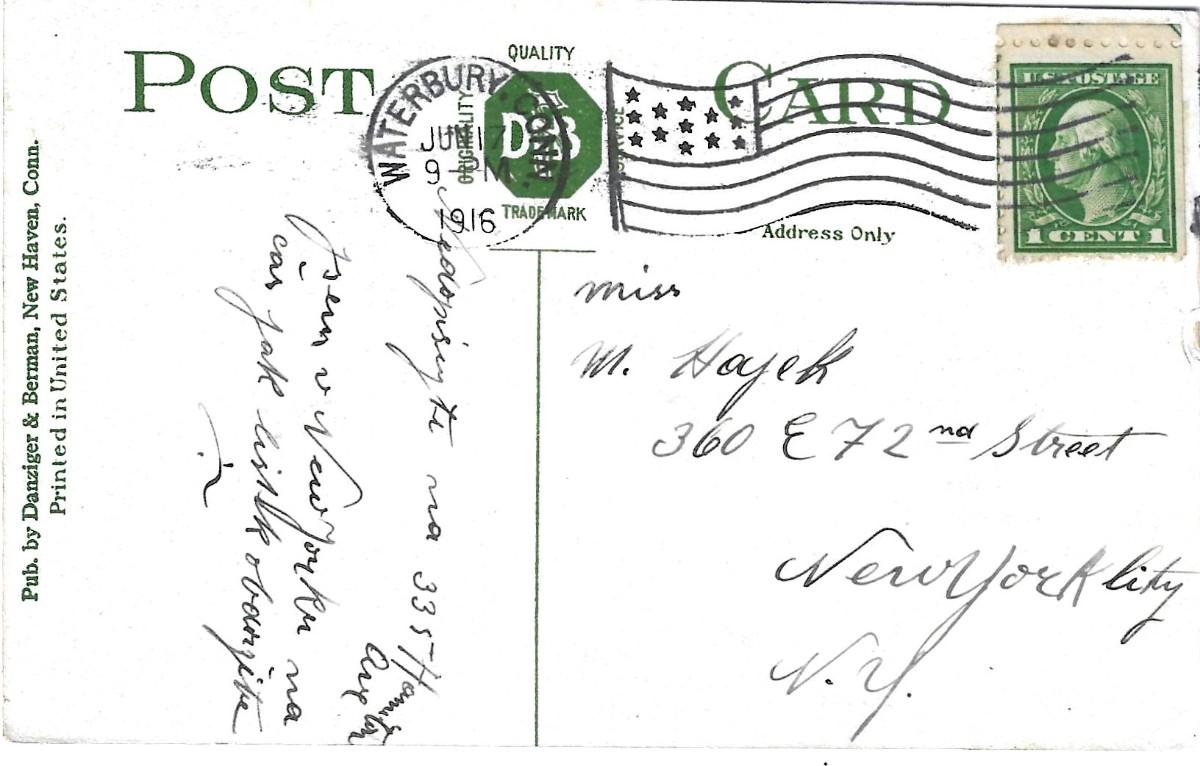 POST CARD
QUALITY
ORIGINALITY
D B
SERVICE
TRADEMARK
WATERBURY. CONN.
JUN 17
9 - M
1916
U.S. POSTAGE
1 CENT 1
Address Only
Pub. by Danziger & Berman, New Haven, Conn.
Printed in United States.
na 335 Hamilton
Ave
Jsem v NewYorku na
čas jak listek obdržíte
miss
M. Hajek
360 E 72nd Street
NewYork City
N.Y.